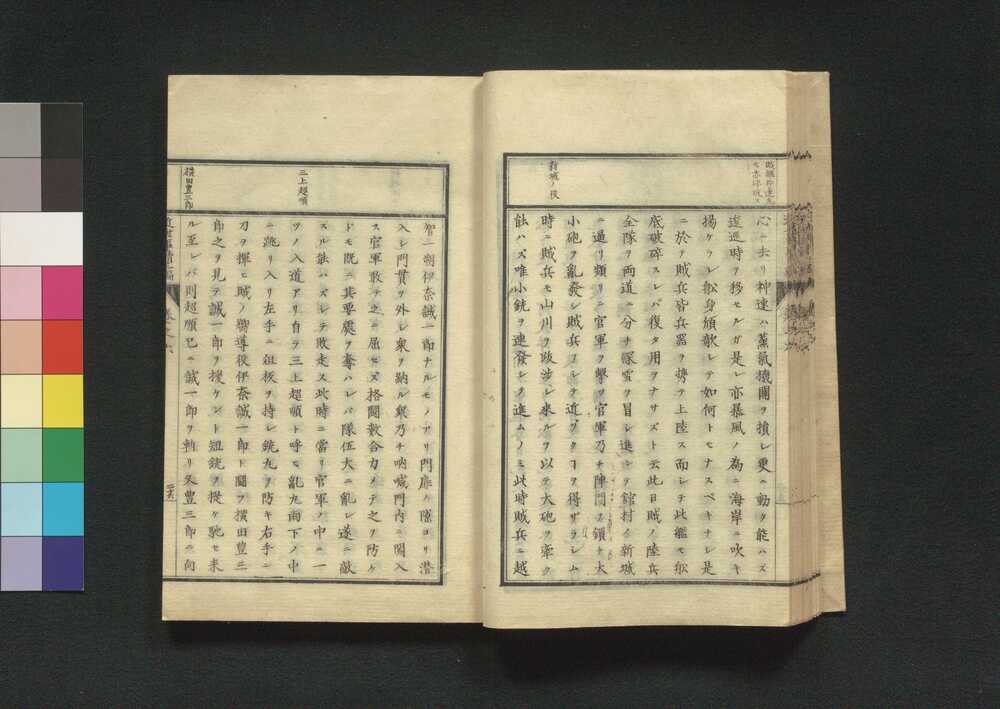 心ニ去リ神速ハ蒸氣機關ヲ損シ更ニ動ク能ハズ
逡巡時ヲ移セルガ是レ亦暴風ノ為ニ海岸ニ吹キ
揚ケラレ舩身傾欹シテ如何トモナスベキナシ是
ニ於テ賊兵皆兵器ヲ携ヘテ上陸ス而シテ此艦モ舩
底破碎スレバ復タ用ヲナサズト云此日賊ノ陸兵
全隊ヲ両道ニ分チ深雪ヲ冒シ進ンデ館村ノ新城
ニ逼リ頻リニ官軍ヲ擊ツ官軍乃チ陣門ヲ鎖シ大
小砲ヲ亂發シ賊兵ヲシテ近ヅクコトヲ得ザラシム
時ニ賊兵モ山川ヲ跋涉シ来ルヲ以テ大砲ヲ牽ク
能ハズ唯小銃ヲ連發シテ進ムノミ此時賊兵ニ越
新城ノ役
智一朔伊奈誠一郎ナルモノアリ門扉ノ隙ヨリ潜
入シ門貫ヲ外シ衆ヲ納ル衆乃チ吶喊門内ニ闖入
ス官軍敢テ之ニ屈セズ格闘數合力メテ之ヲ防ク
ドモ既ニ其要處ヲ奪ハレバ隊伍大ニ亂レ遂ニ敵
スル能ハズシテ敗走ス此時ニ當リ官軍ノ中ニ一
ツノ入道アリ自ラ三上超順ト呼ビ亂丸雨下ノ中
ニ跳リ入リ左手ニ俎板ヲ持シ銃丸ヲ防キ右手ニ
刀ヲ揮ヒ賊ノ嚮導役伊奈誠一郎ト闘フ横田豊三
郎之ヲ見テ誠一郎ヲ援ケント短銃ヲ提ケ馳セ来
ル至レバ則超順已ニ誠一郎ヲ斬リ又豊三郎ニ向
三上超順
横田豊三郎